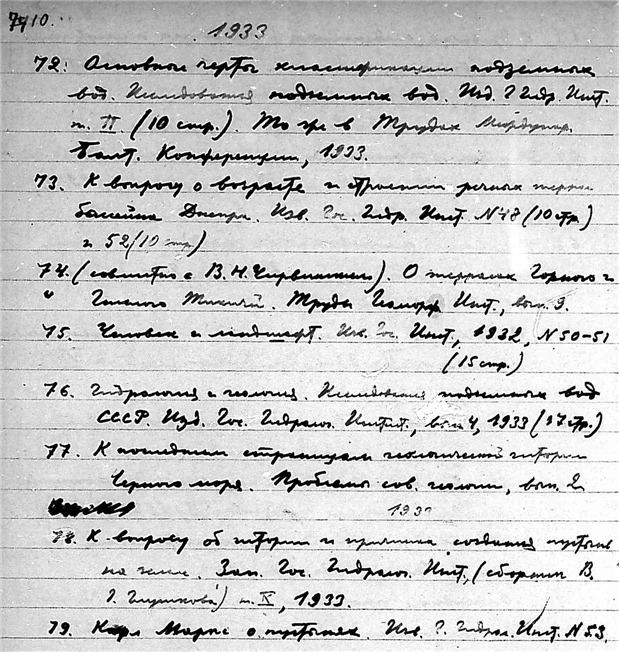 10.
1933
72. Основные черты классификации подземных
вод. Исследования подземных вод. Изд. Гидр. Инст.
т. II (10 стр.). То же в Трудах Междунар.
Балт. Конференции, 1933.
73. К вопросу о возрасте и строении речных террас
бассейна Днепра. Изв. Гос. Гидр. Инст. N 48 (10 стр.)
и 52 (10 стр.)
74. (совместно с В. Н. Чирвинским). О террасах Горного и
Гнилого Тикичей. Труды Геоморф. Инст., вып. 9.
75. Человек и ландшафт. Изв. Гос. Инст., 1932, N 50-51
(15 стр.)
76. Гидрология и геология. Исследования подземных вод
СССР. Изд. Гос. Гидролог. Инстит., вып 4, 1933 (17 стр.)
77. К последним страницам геологической истории
Черного моря. Проблемы сов. геологии, вып. 2
193
78. К вопросу об истории и причинах создания пустынь
на земле. Зап. Гос. Гидролог. Инст., (сборник В.
Г. Глушкова) т. X, 1933.
79. Карл Маркс о пустынях. Изв. Г. Гидрол. Инст. N 59,